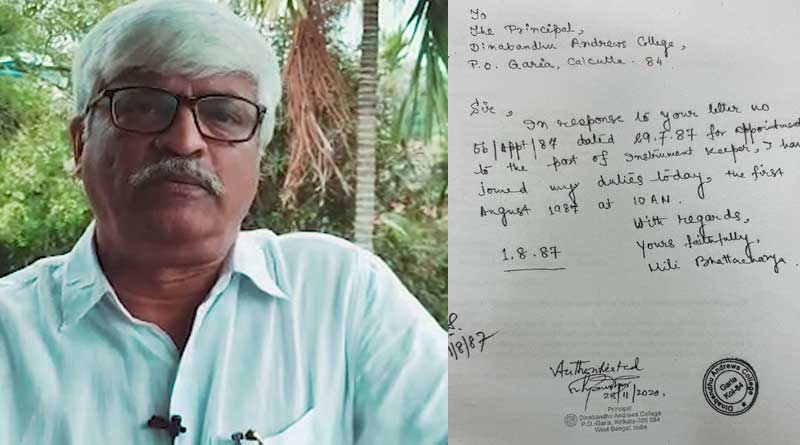 To
The Principal,
Dinabandhu Andrews College,
P.O. Garia, Calcutta - 84.
Sir,
In response to your letter no
56/Appt/87 dated 29.7.87 for appointment
to the post of Instrument Keeper, I have
joined my duties today, the first
August 1987 at 10 AM.
With regards,
1.8.87
Yours faithfully,
Mili Bhattacharya.
/8/87
Authenticated
28/11/2020.
Principal
Dinabandhu Andrews College
P.O.-Garia, Kolkata-700 084
West Bengal, India
Dinabandhu Andrews College
Garia
Kol-84